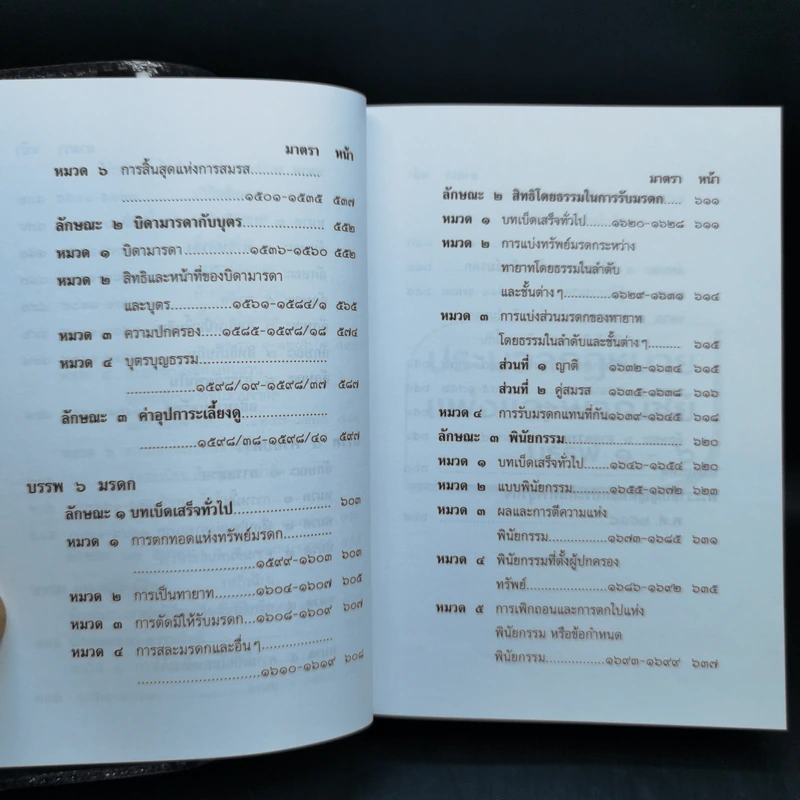 มาตรา หน้า
หมวด ๖ การสิ้นสุดแห่งการสมรส..................
..........................๑๕๐๑-๑๕๓๕ ๕๓๗
ลักษณะ ๒ บิดามารดากับบุตร........................ ๕๕๒
หมวด ๑ บิดามารดา...............๑๕๓๖-๑๕๖๐ ๕๕๒
หมวด ๒ สิทธิและหน้าที่ของบิดามารดา
และบุตร...............๑๕๖๑-๑๕๘๔/๑ ๕๖๕
หมวด ๓ ความปกครอง....๑๕๘๕-๑๕๙๘/๑๘ ๕๗๔
หมวด ๔ บุตรบุญธรรม............................
............๑๕๙๘/๑๙-๑๕๙๘/๓๗ ๕๘๗
ลักษณะ ๓ ค่าอุปการะเลี้ยงดู........................
............๑๕๙๘/๓๘-๑๕๙๘/๔๑ ๕๙๗
บรรพ ๖ มรดก
ลักษณะ ๑ บทเบ็ดเสร็จทั่วไป........................ ๖๐๓
หมวด ๑ การตกทอดแห่งทรัพย์มรดก................
..........................๑๕๙๙-๑๖๐๓ ๖๐๓
หมวด ๒ การเป็นทายาท......๑๖๐๔-๑๖๐๗ ๖๐๕
หมวด ๓ การตัดมิให้รับมรดก...๑๖๐๘-๑๖๐๙ ๖๐๗
หมวด ๔ การสละมรดกและอื่น ๆ..................
..........................๑๖๑๐-๑๖๑๙ ๖๐๘
มาตรา หน้า
ลักษณะ ๒ สิทธิโดยธรรมในการรับมรดก..... ๖๑๑
หมวด ๑ บทเบ็ดเสร็จทั่วไป.....๑๖๒๐-๑๖๒๘ ๖๑๑
หมวด ๒ การแบ่งทรัพย์มรดกระหว่าง
ทายาทโดยธรรมในลำดับ
และชั้นต่าง ๆ..............๑๖๒๙-๑๖๓๑ ๖๑๔
หมวด ๓ การแบ่งส่วนมรดกของทายาท
โดยธรรมในลำดับและชั้นต่าง ๆ......... ๖๑๕
ส่วนที่ ๑ ญาติ ......๑๖๓๒-๑๖๓๔ ๖๑๕
ส่วนที่ ๒ คู่สมรส ....๑๖๓๕-๑๖๓๘ ๖๑๖
หมวด ๔ การรับมรดกแทนที่กัน๑๖๓๙-๑๖๔๕ ๖๑๘
ลักษณะ ๓ พินัยกรรม............................ ๖๒๐
หมวด ๑ บทเบ็ดเสร็จทั่วไป.....๑๖๔๖-๑๖๕๔ ๖๒๐
หมวด ๒ แบบพินัยกรรม.......๑๖๕๕-๑๖๗๒ ๖๒๓
หมวด ๓ ผลและการตีความแห่ง
พินัยกรรม...............๑๖๗๓-๑๖๘๕ ๖๓๑
หมวด ๔ พินัยกรรมที่ตั้งผู้ปกครอง
ทรัพย์...................๑๖๘๖-๑๖๙๒ ๖๓๕
หมวด ๕ การเพิกถอนและการตกไปแห่ง
พินัยกรรม หรือข้อกำหนด
พินัยกรรม...............๑๖๙๓-๑๖๙๙ ๖๓๗